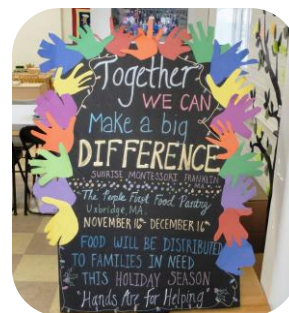 Together
WE CAN
Make a big
DIFFERENCE
SUNRISE MONTESSORI FRANKLIN
MA
The People First Food Pantry
Uxbridge, MA.
NOVEMBER 16th - DECEMBER 16th
FOOD WILL BE DISTRIBUTED
TO FAMILIES IN NEED
THIS HOLIDAY SEASON
"Hands Are for Helping"